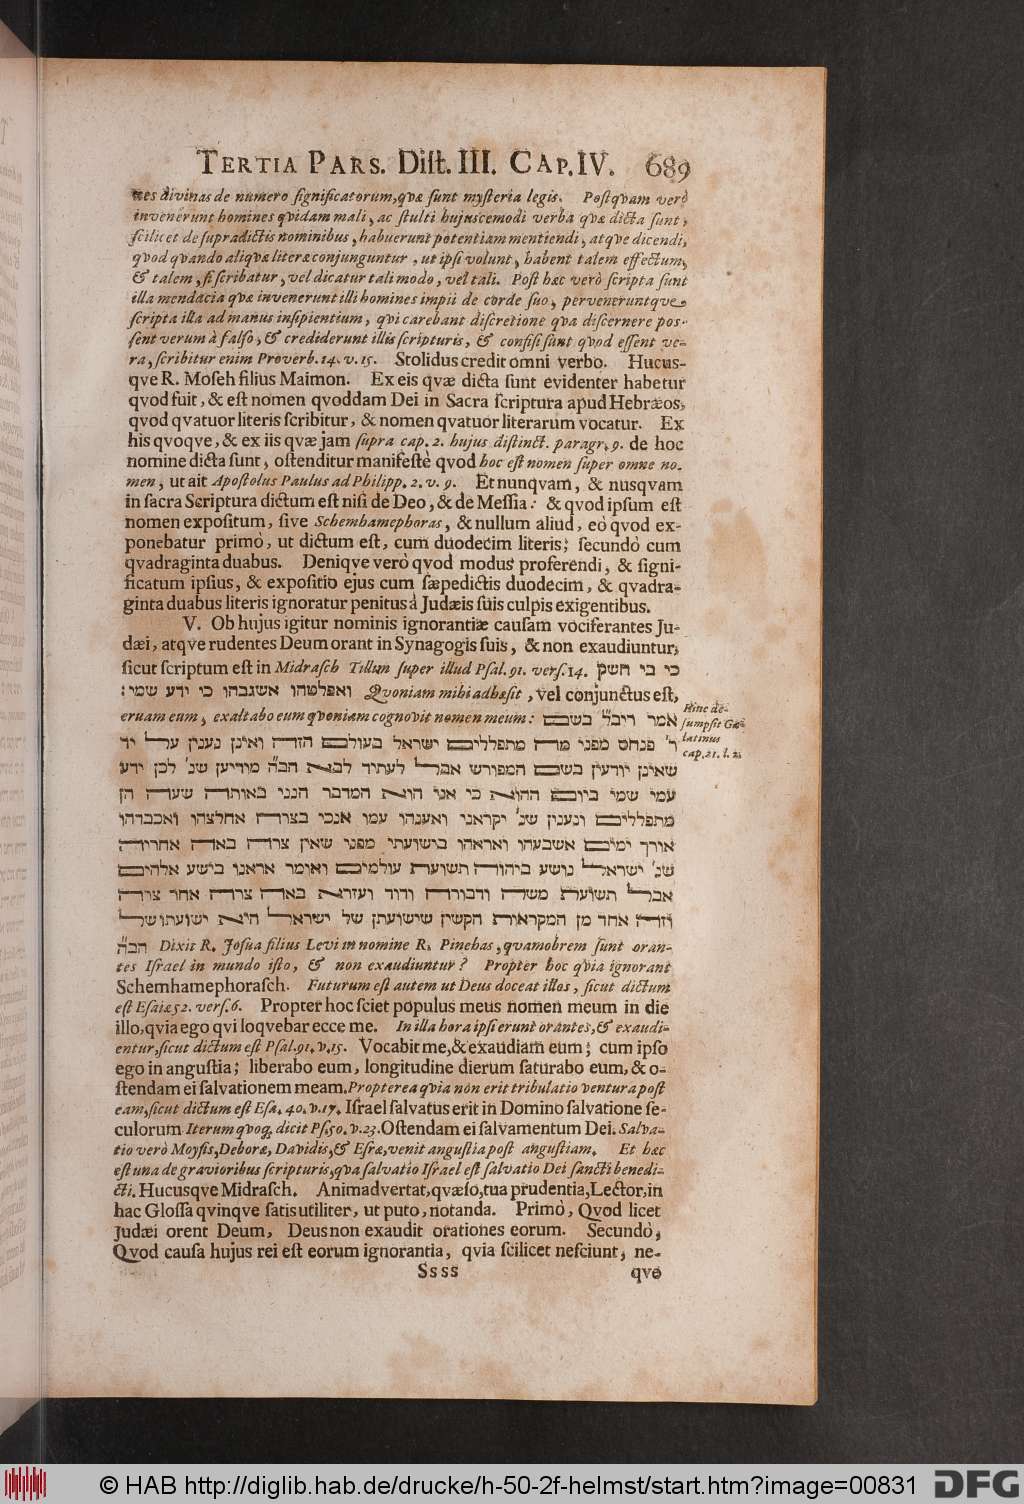 TERTIA PARS. Dist. III. CAP. IV. 689
nes divinas de numero significatorum, qvæ sunt mysteria legis. Postqvam verò
invenerunt homines qvidam mali, ac stulti hujuscemodi verba qvæ dicta sunt,
scilicet de supradictis nominibus, habuerunt potentiam mentiendi, atqve dicendi,
qvod qvando aliqvæ literæ conjunguntur, ut ipsi volunt, habent talem effectum,
& talem, si scribatur, vel dicatur tali modo, vel tali. Post hæc verò scripta sunt
illa mendacia qvæ invenerunt illi homines impii de corde suo, perveneruntqve
scripta illa ad manus insipientium, qvi carebant discretione qva discernere pos-
sent verum à falso, & crediderunt illis scripturis, & confisi sunt qvod essent ve-
ra, scribitur enim Proverb. 14. v. 15. Stolidus credit omni verbo. Hucus-
qve R. Moseh filius Maimon. Ex eis qvæ dicta sunt evidenter habetur
qvod fuit, & est nomen qvoddam Dei in Sacra scriptura apud Hebræos,
qvod qvatuor literis scribitur, & nomen qvatuor literarum vocatur. Ex
his qvoqve, & ex iis qvæ jam supra cap. 2. hujus distinct. paragr. 9. de hoc
nomine dicta sunt, ostenditur manifestè qvod hoc est nomen super omne no-
men, ut ait Apostolus Paulus ad Philipp. 2. v. 9. Et nunqvam, & nusqvam
in sacra Scriptura dictum est nisi de Deo, & de Messia: & qvod ipsum est
nomen expositum, sive Schemhamephoras, & nullum aliud, eò qvod ex-
ponebatur primò, ut dictum est, cum duodecim literis; secundò cum
qvadraginta duabus. Deniqve verò qvod modus proferendi, & signi-
ficatum ipsius, & expositio ejus cum sæpedictis duodecim, & qvadra-
ginta duabus literis ignoratur penitus à Judæis suis culpis exigentibus.
V. Ob hujus igitur nominis ignorantiæ causam vociferantes Ju-
dæi, atqve rudentes Deum orant in Synagogis suis, & non exaudiuntur,
sicut scriptum est in Midrasch Tillim super illud Psal. 91. vers. 14. כי בי חשק
ואפלטהו אשגבהו כי ידע שמי: Qvoniam mihi adhæsit, vel conjunctus est,
eruam eum, exaltabo eum qvoniam cognovit nomen meum: אמר ריב״ל בשם
Hinc de-
sumpsit Ga-
latinus
cap. 21. l. 2.
ר׳ פנחס מפני מה מתפללים ישראל בעולם הזה ואינן נענין על יד
שאינן יודעין בשם המפורש אבל לעתיד לבוא הב״ה מודיען שנ׳ לכן ידע
עמי שמי ביום ההוא כי אני הוא המדבר הנני באותה שעה הן
מתפללים ונענין שנ׳ יקראני ואענהו עמו אנכי בצרה אחלצהו ואכבדהו
אורך ימים אשבעהו ואראהו בישועתי מפני שאין צרה באה אחריה
שנ׳ ישראל נושע ביהוה תשועת עולמים ואומר אראנו בישע אלהים
אבל תשועת משה ודבורה ודוד ועזרא באה צרה אחר צרה
וזה אחד מן המקראות הקשין שישועתן של ישראל היא ישועתו של
הב״ה Dixit R. Josua filius Levi in nomine R. Pinehas, qvamobrem sunt oran-
tes Israel in mundo isto, & non exaudiuntur? Propter hoc qvia ignorant
Schemhamephorasch. Futurum est autem ut Deus doceat illos, sicut dictum
est Esaiæ 52. vers. 6. Propter hoc sciet populus meus nomen meum in die
illo, qvia ego qvi loqvebar ecce me. In illa hora ipsi erunt orantes, & exaudi-
entur, sicut dictum est Psal. 91. v. 15. Vocabit me, & exaudiam eum; cum ipso
ego in angustia; liberabo eum, longitudine dierum saturabo eum, & o-
stendam ei salvationem meam. Propterea qvia non erit tribulatio ventura post
eam, sicut dictum est Esa. 40. v. 17. Israel salvatus erit in Domino salvatione se-
culorum Iterum qvoq; dicit Ps. 50. v. 23. Ostendam ei salvamentum Dei. Salva-
tio verò Moysis, Deboræ, Davidis, & Esræ, venit angustia post angustiam. Et hæc
est una de gravioribus scripturis, qva salvatio Israel est salvatio Dei sancti benedi-
cti. Hucusqve Midrasch. Animadvertat, qvæso, tua prudentia, Lector, in
hac Glossa qvinqve satis utiliter, ut puto, notanda. Primò, Qvod licet
Judæi orent Deum, Deus non exaudit orationes eorum. Secundò,
Qvod causa hujus rei est eorum ignorantia, qvia scilicet nesciunt, ne-
Ssss qve
© HAB http://diglib.hab.de/drucke/h-50-2f-helmst/start.htm?image=00831 DFG